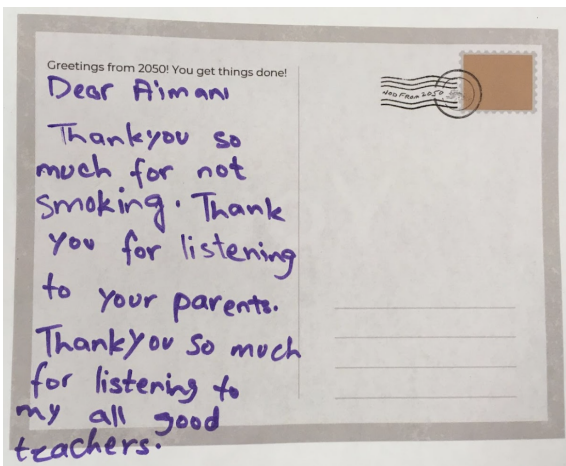 Greetings from 2050! You get things done!
Dear Aiman
Thankyou so
much for not
smoking. Thank
you for listening
to your parents.
Thankyou so much
for listening to
my all good
teachers.
FROM 2050